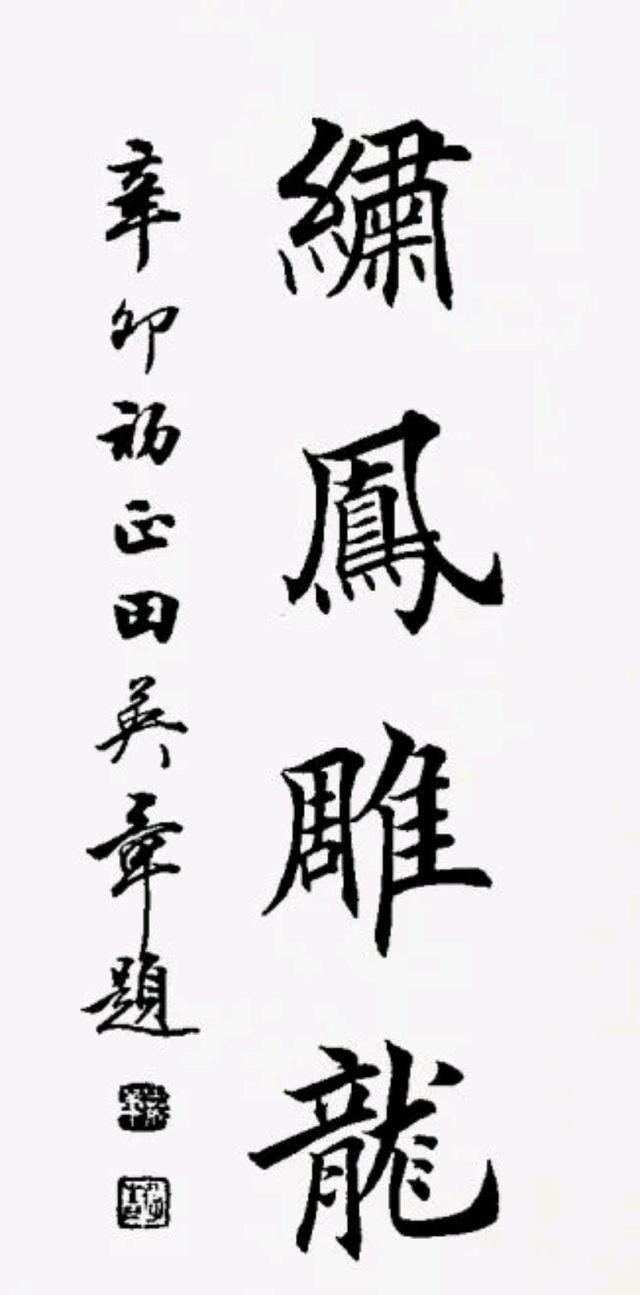 繡鳳雕龍
辛卯初正田英章題